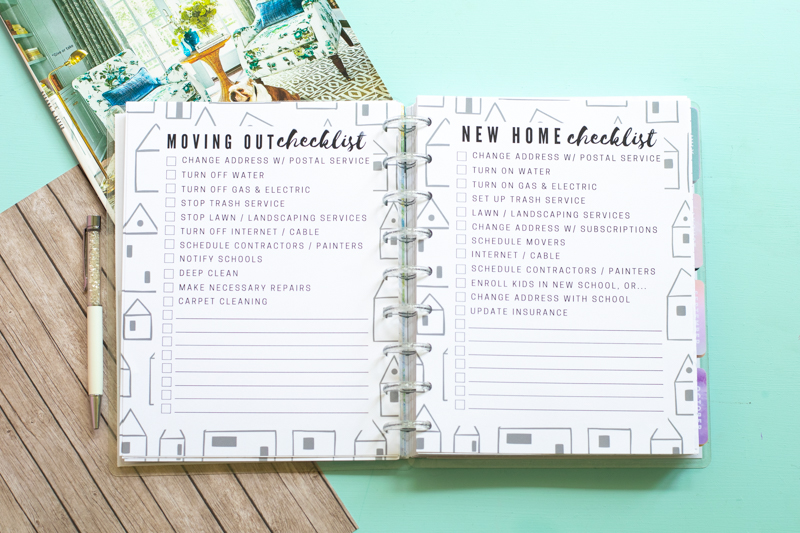 MOVING OUT checklist
CHANGE ADDRESS W/ POSTAL SERVICE
TURN OFF WATER
TURN OFF GAS & ELECTRIC
STOP TRASH SERVICE
STOP LAWN / LANDSCAPING SERVICES
TURN OFF INTERNET / CABLE
SCHEDULE CONTRACTORS / PAINTERS
NOTIFY SCHOOLS
DEEP CLEAN
MAKE NECESSARY REPAIRS
CARPET CLEANING
NEW HOME checklist
CHANGE ADDRESS W/ POSTAL SERVICE
TURN ON WATER
TURN ON GAS & ELECTRIC
SET UP TRASH SERVICE
LAWN / LANDSCAPING SERVICES
CHANGE ADDRESS W/ SUBSCRIPTIONS
SCHEDULE MOVERS
INTERNET / CABLE
SCHEDULE CONTRACTORS / PAINTERS
ENROLL KIDS IN NEW SCHOOL, OR...
CHANGE ADDRESS WITH SCHOOL
UPDATE INSURANCE